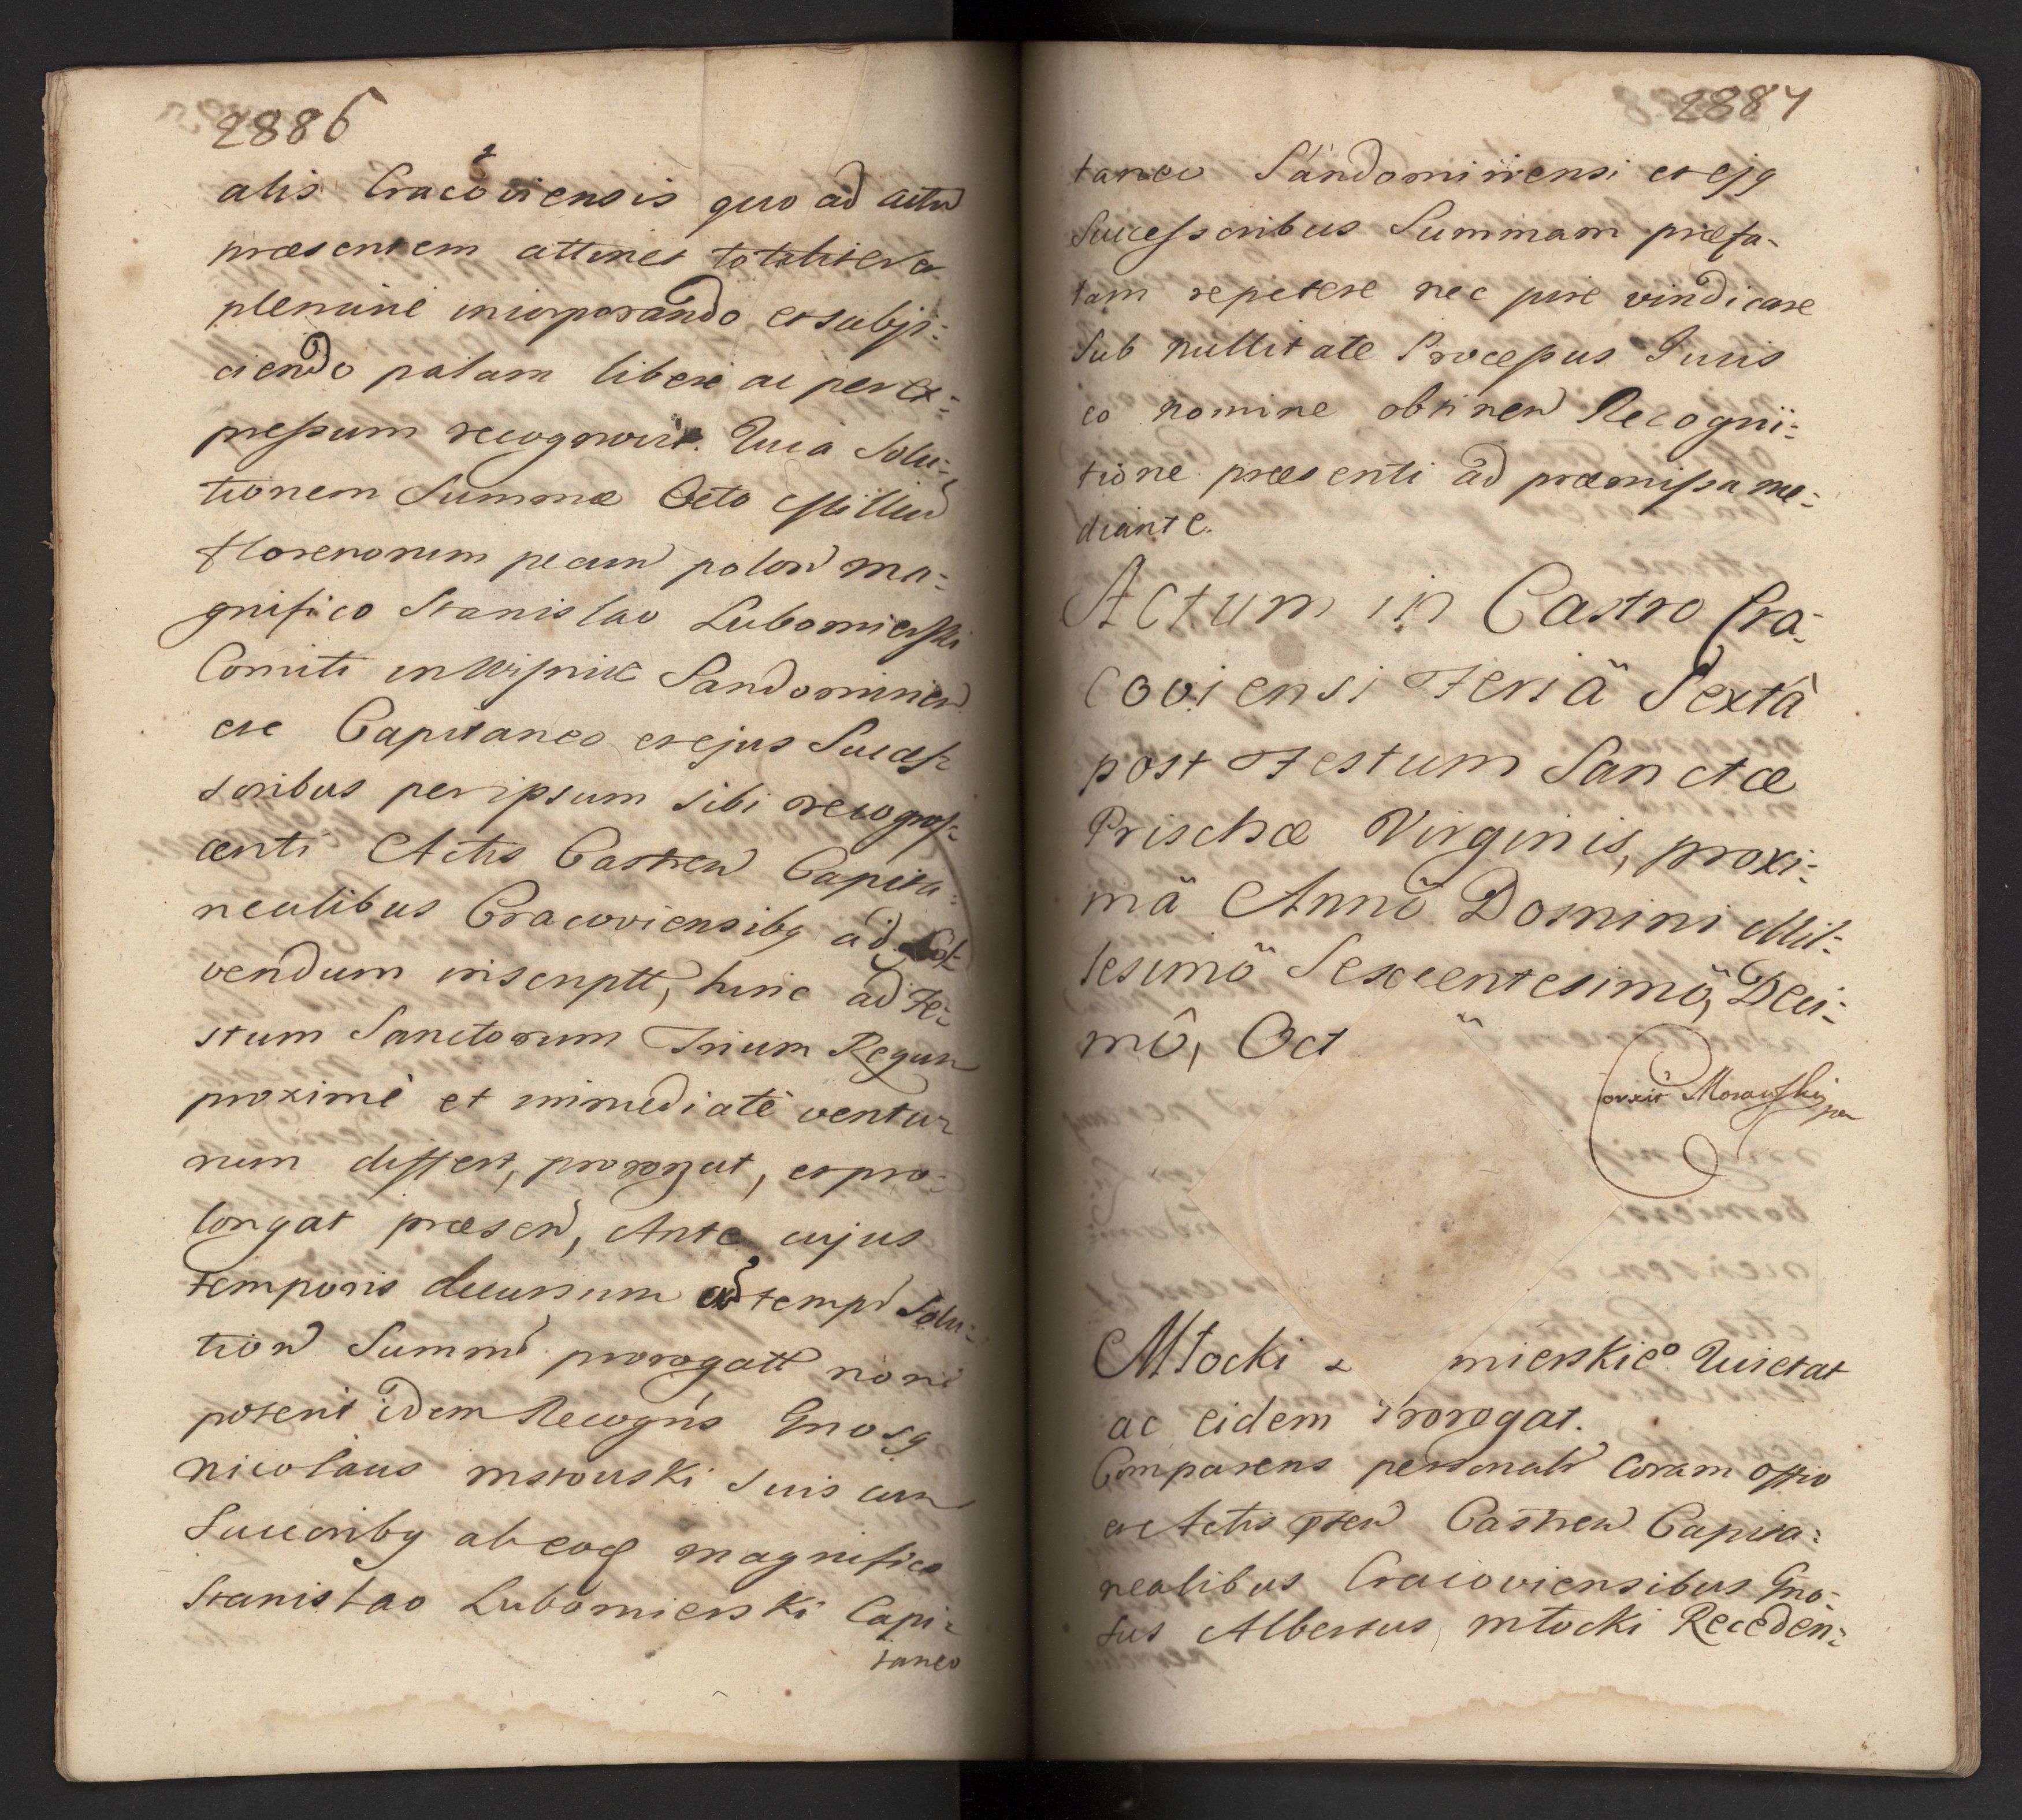 2886
alis Cracoviensis quo ad actū
præsentem attinet totaliter ac
plenariè incorporando et subji-
ciendo palam libere ac per ex-
pressum recognovit. Quia Solu-
tionem Summæ Octo Milliū
Florenorum pecun polon ma-
gnifico Stanislao Lubomierski
Comiti in Wisnicz Sandomirien
etc Capitaneo et ejus Succes-
soribus per ipsum sibi recognos-
centi Actis Castren Capita-
nealibus Cracoviensibq ad Sol-
vendum inscriptt, hinc ad Fe-
stum Sanctorum Trium Regum
proximè et immediatè ventu-
rum differt, prorogat, et pro-
longat præsen, Ante cujus
temporis decursum ad temp Solu-
tion Summæ prorogatt non
poterit idem Recogns Gnosq
nicolaus suis cum
Succoribq ab eod magnifico
Stanislao Lubomierski Capi-
taneo
2887
taneo Sandomiriensi et ejq
Successoribus Summam præfa-
tam repetere nec jure vindicare
Sub nullitate Processus Juris
eo nomine obtinen Recogni-
tione præsenti ad præmissa me-
diante.
Actum in Castro Cra-
coviensi Feriâ Sextâ
post Festum Sanctæ
Prischæ Virginis, proxi-
mâ Annô Domini Mil-
lesimô Sexcentesimô, Deci-
mô, Oct
Corexit Morawski
Młocki mierskieo Quietat
ac eidem Prorogat.
Comparens personalr Coram Offio
et Actis pten Castren Capita-
nealibus Cracoviensibus Gno-
sus Albertus młocki Receden-